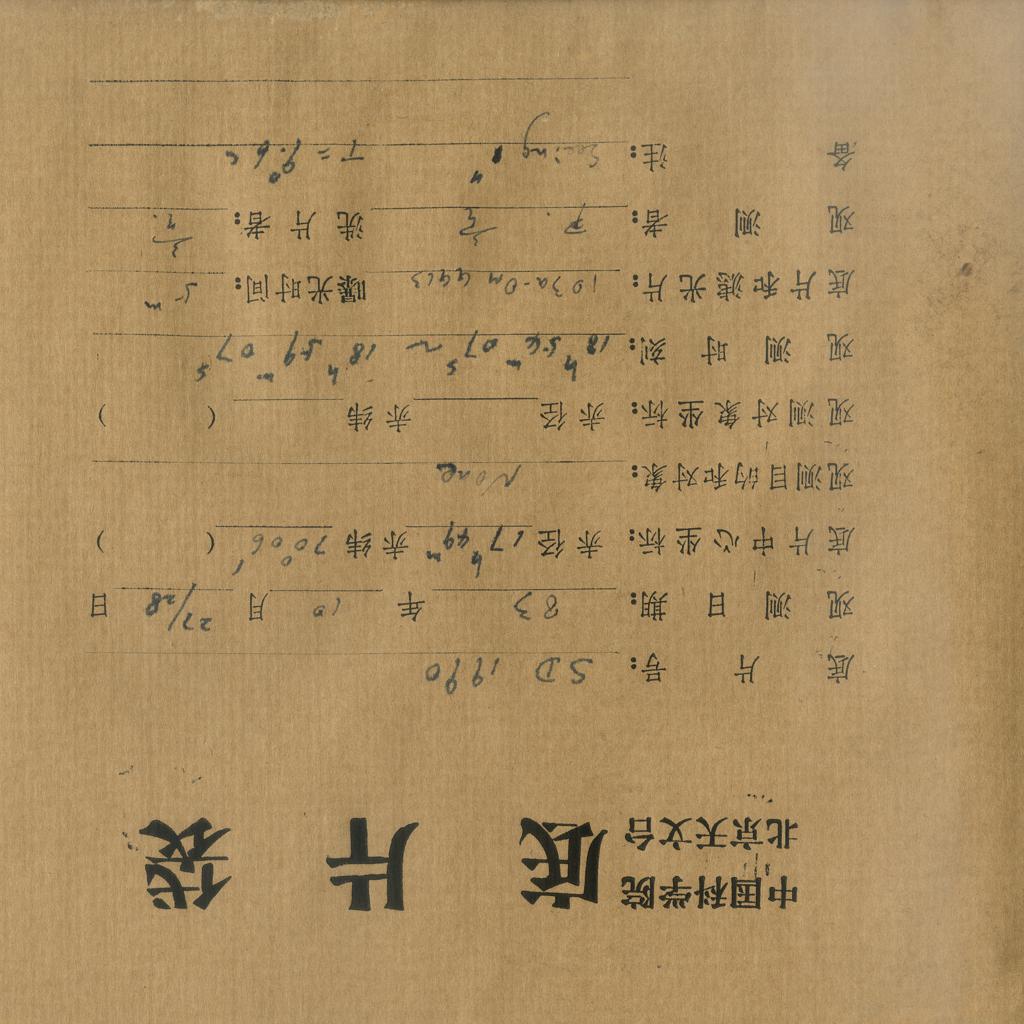 中国科学院
北京天文台
底片袋
底片号: SD 1990
观测日期: 83 年 10 月 27/28 日
底片中心坐标: 赤径 17h 49m 赤纬 70°06′ ( )
观测目的和对象: None
观测对象坐标: 赤径 赤纬 ( )
观测时刻: 18h 54m 07s ~ 18h 59m 07s
底片和滤光片: 103a-O 曝光时间: 5m
观测者: 洗片者:
备注: Seeing T = 9.6